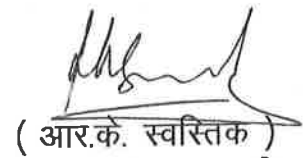 ( आर.के. स्वस्तिक )